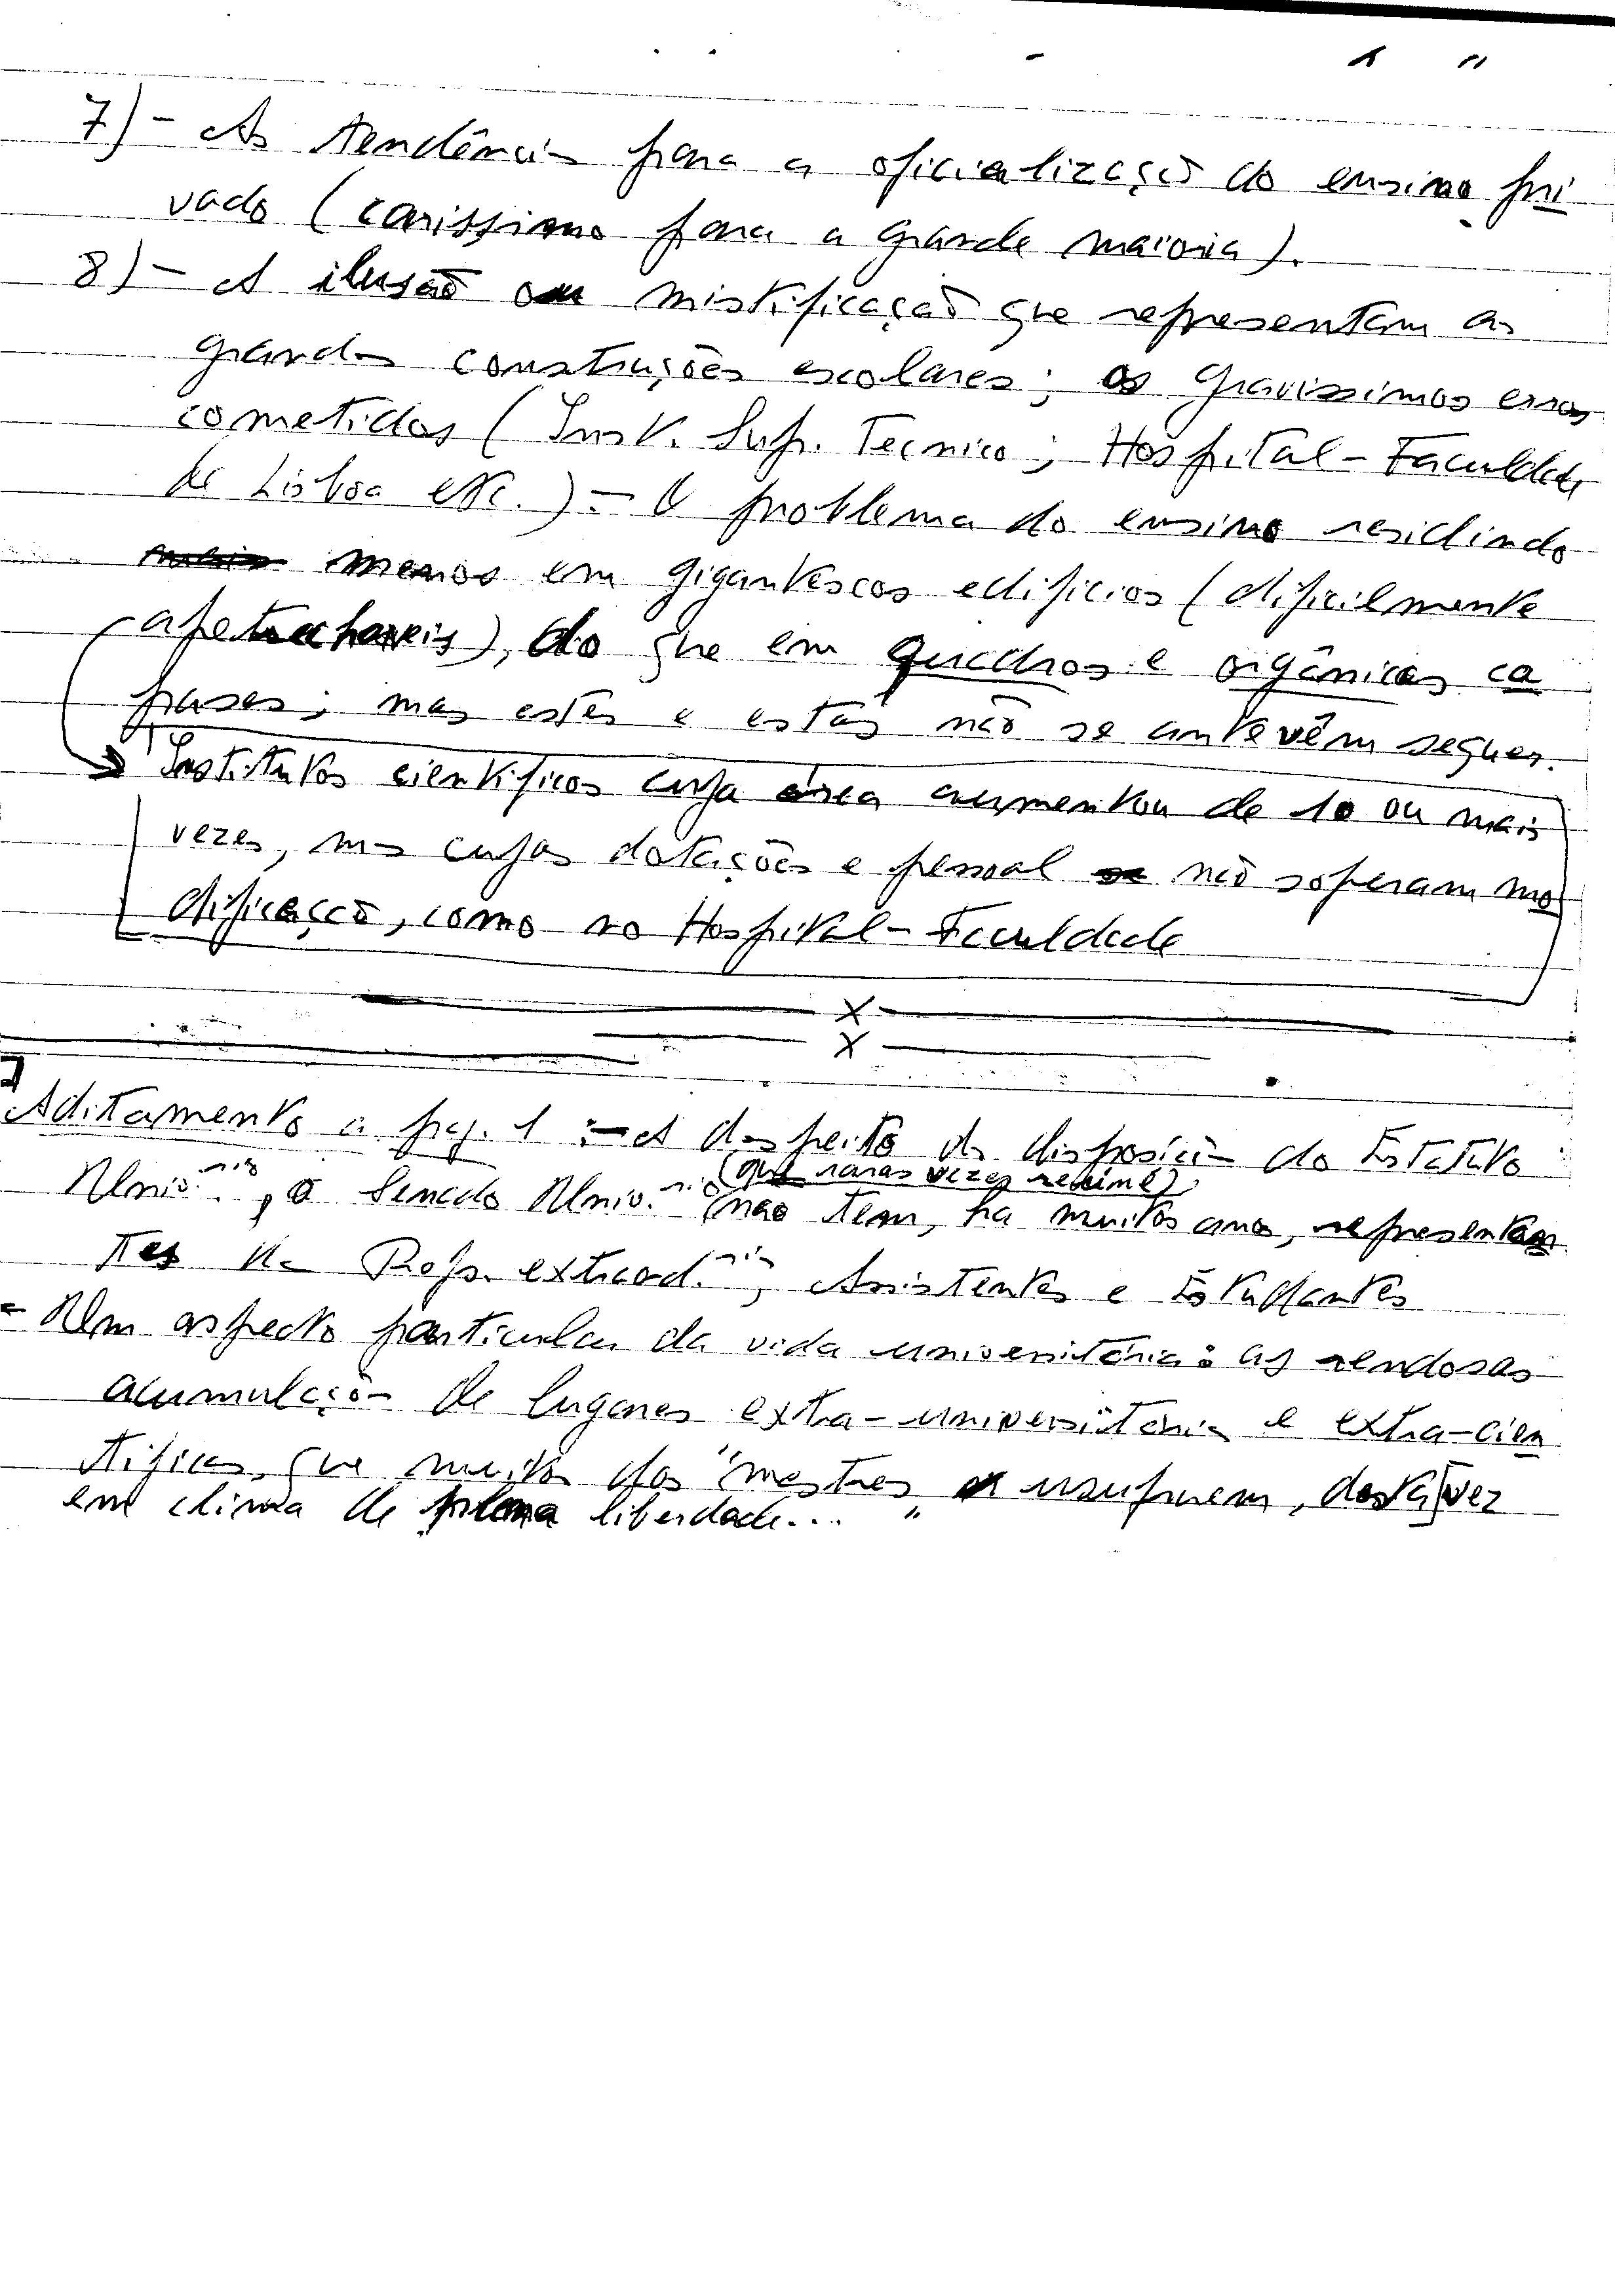 7) - As tendências para a oficialização do ensino pri
vado (caríssimo para a grande maioria).
8) - A ilusão ou mistificação que representam as
grandes construções escolares; os gravíssimos erros
cometidos (Inst. Sup. Tecnico; Hospital-Faculdade
de Lisboa etc.) - O problema do ensino residindo
menos em gigantescos edificios (dificilmente
apetrechaveis), do que em quadros e orgânicas ca
pases; mas estes e estas não se antevêm sequer.
Institutos cientificos cuja área aumentou de 10 ou mais
vezes, mas cujas dotações e pessoal não soferam mo
dificação, como no Hospital-Faculdade
X
X
Aditamento a pag. 1 :- A despeito das disposições do Estatuto
(que raras vezes reúne)
Univ.rio, o Senado Univ.rio não tem, ha muitos anos, representan
tes dos Profs. extraord.rios, Assistentes e Estudantes
- Um aspecto particular da vida universitária: as rendosas
acumulações de lugares extra-universitários e extra-cien
tificos, que muitos dos "mestres" usufruem, desta vez
em clima de plena liberdade...